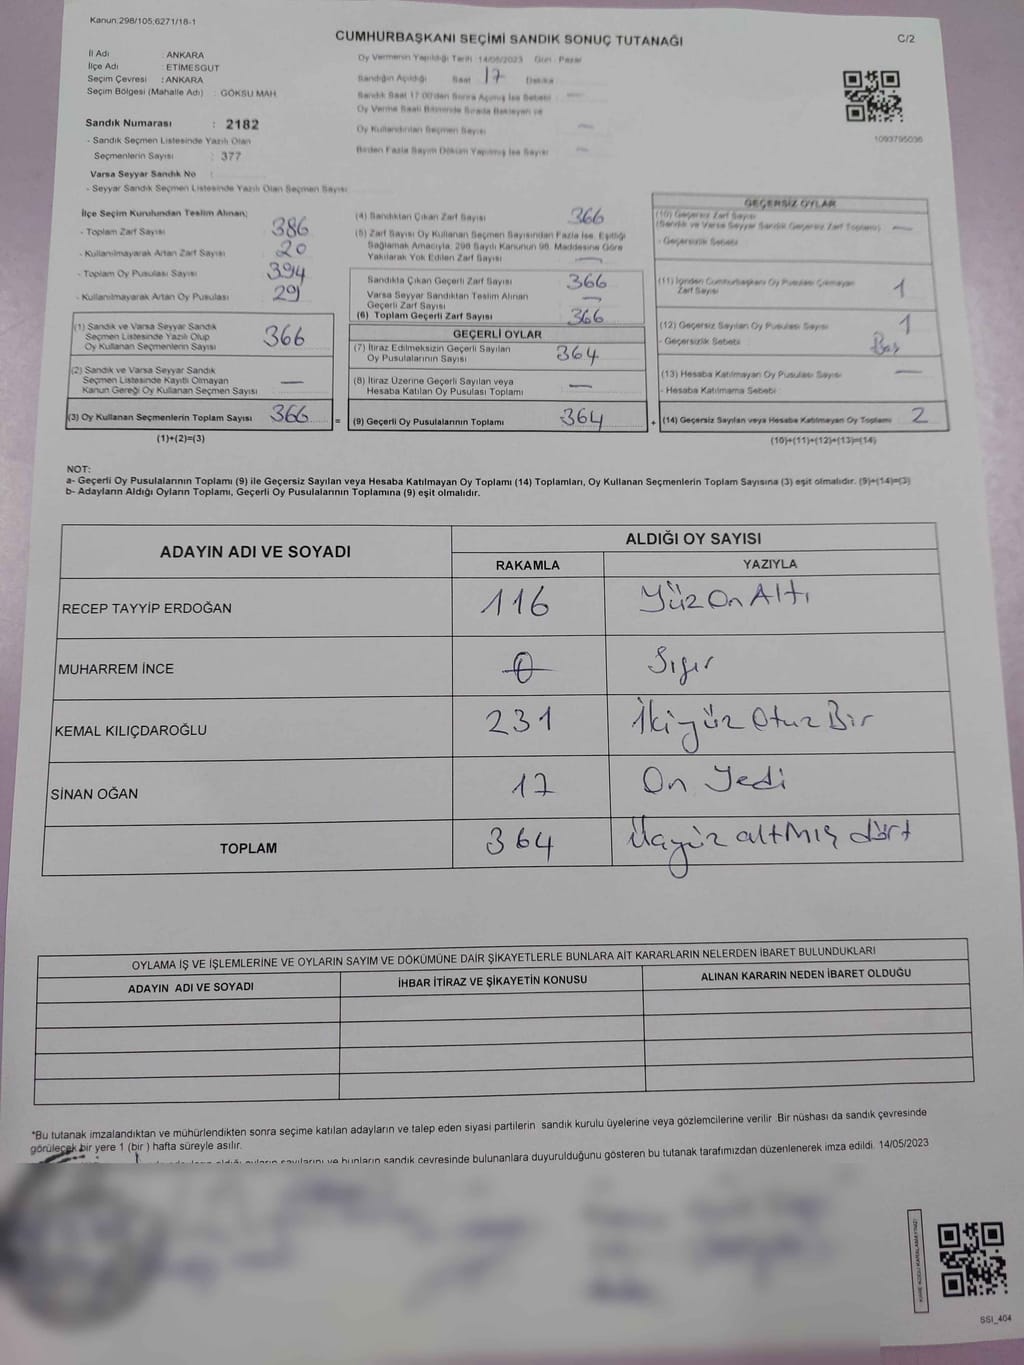 Kanun:298/105;6271/18-1
CUMHURBAŞKANI SEÇİMİ SANDIK SONUÇ TUTANAĞI
C/2
İl Adı : ANKARA
İlçe Adı : ETİMESGUT
Seçim Çevresi : ANKARA
Seçim Bölgesi (Mahalle Adı) : GÖKSU MAH.
Sandık Numarası : 2182
- Sandık Seçmen Listesinde Yazılı Olan
Seçmenlerin Sayısı : 377
Varsa Seyyar Sandık No
- Seyyar Sandık Seçmen Listesinde Yazılı Olan Seçmen Sayısı:
Oy Vermenin Yapıldığı Tarih :14/05/2023 Gün : Pazar
Sandığın Açıldığı Saat 17 Dakika
Sandık Saat 17.00'den Sonra Açılmış İse Sebebi —
Oy Verme Saati Bitiminde Sırada Bekleyen ve
Oy Kullandırılan Seçmen Sayısı —
Birden Fazla Sayım Döküm Yapılmış İse Sayısı —
1093795036
İlçe Seçim Kurulundan Teslim Alınan;
- Toplam Zarf Sayısı 386
- Kullanılmayarak Artan Zarf Sayısı 20
- Toplam Oy Pusulası Sayısı 394
- Kullanılmayarak Artan Oy Pusulası 29
(1) Sandık ve Varsa Seyyar Sandık
Seçmen Listesinde Yazılı Olup
Oy Kullanan Seçmenlerin Sayısı 366
(2) Sandık ve Varsa Seyyar Sandık
Seçmen Listesinde Kayıtlı Olmayan
Kanun Gereği Oy Kullanan Seçmen Sayısı —
(3) Oy Kullanan Seçmenlerin Toplam Sayısı 366 =
(1)+(2)=(3)
(4) Sandıktan Çıkan Zarf Sayısı 366
(5) Zarf Sayısı Oy Kullanan Seçmen Sayısından Fazla İse, Eşitliği
Sağlamak Amacıyla, 298 Sayılı Kanunun 98. Maddesine Göre
Yakılarak Yok Edilen Zarf Sayısı —
Sandıkta Çıkan Geçerli Zarf Sayısı 366
Varsa Seyyar Sandıktan Teslim Alınan
Geçerli Zarf Sayısı —
(6) Toplam Geçerli Zarf Sayısı 366
GEÇERLİ OYLAR
(7) İtiraz Edilmeksizin Geçerli Sayılan
Oy Pusulalarının Sayısı 364
(8) İtiraz Üzerine Geçerli Sayılan veya
Hesaba Katılan Oy Pusulası Toplamı —
(9) Geçerli Oy Pusulalarının Toplamı 364 +
GEÇERSİZ OYLAR
(10) Geçersiz Zarf Sayısı
(Sandık ve Varsa Seyyar Sandık Geçersiz Zarf Toplamı) —
- Geçersizlik Sebebi
(11) İçinden Cumhurbaşkanı Oy Pusulası Çıkmayan
Zarf Sayısı 1
(12) Geçersiz Sayılan Oy Pusulası Sayısı 1
- Geçersizlik Sebebi Boş
(13) Hesaba Katılmayan Oy Pusulası Sayısı —
- Hesaba Katılmama Sebebi
(14) Geçersiz Sayılan veya Hesaba Katılmayan Oy Toplamı 2
(10)+(11)+(12)+(13)=(14)
NOT:
a- Geçerli Oy Pusulalarının Toplamı (9) ile Geçersiz Sayılan veya Hesaba Katılmayan Oy Toplamı (14) Toplamları, Oy Kullanan Seçmenlerin Toplam Sayısına (3) eşit olmalıdır. (9)+(14)=(3)
b- Adayların Aldığı Oyların Toplamı, Geçerli Oy Pusulalarının Toplamına (9) eşit olmalıdır.
ADAYIN ADI VE SOYADI ALDIĞI OY SAYISI
RAKAMLA YAZIYLA
RECEP TAYYİP ERDOĞAN 116 Yüz On Altı
MUHARREM İNCE 0 Sıfır
KEMAL KILIÇDAROĞLU 231 İkiyüz Otuz Bir
SİNAN OĞAN 17 On Yedi
TOPLAM 364 Üçyüz altmış dört
OYLAMA İŞ VE İŞLEMLERİNE VE OYLARIN SAYIM VE DÖKÜMÜNE DAİR ŞİKAYETLERLE BUNLARA AİT KARARLARIN NELERDEN İBARET BULUNDUKLARI
ADAYIN ADI VE SOYADI İHBAR İTİRAZ VE ŞİKAYETİN KONUSU ALINAN KARARIN NEDEN İBARET OLDUĞU
*Bu tutanak imzalandıktan ve mühürlendikten sonra seçime katılan adayların ve talep eden siyasi partilerin sandık kurulu üyelerine veya gözlemcilerine verilir. Bir nüshası da sandık çevresinde
görülecek bir yere 1 (bir) hafta süreyle asılır.
aldığı oyların sayılarını ve bunların sandık çevresinde bulunanlara duyurulduğunu gösteren bu tutanak tarafımızdan düzenlenerek imza edildi. 14/05/2023
SSI_404